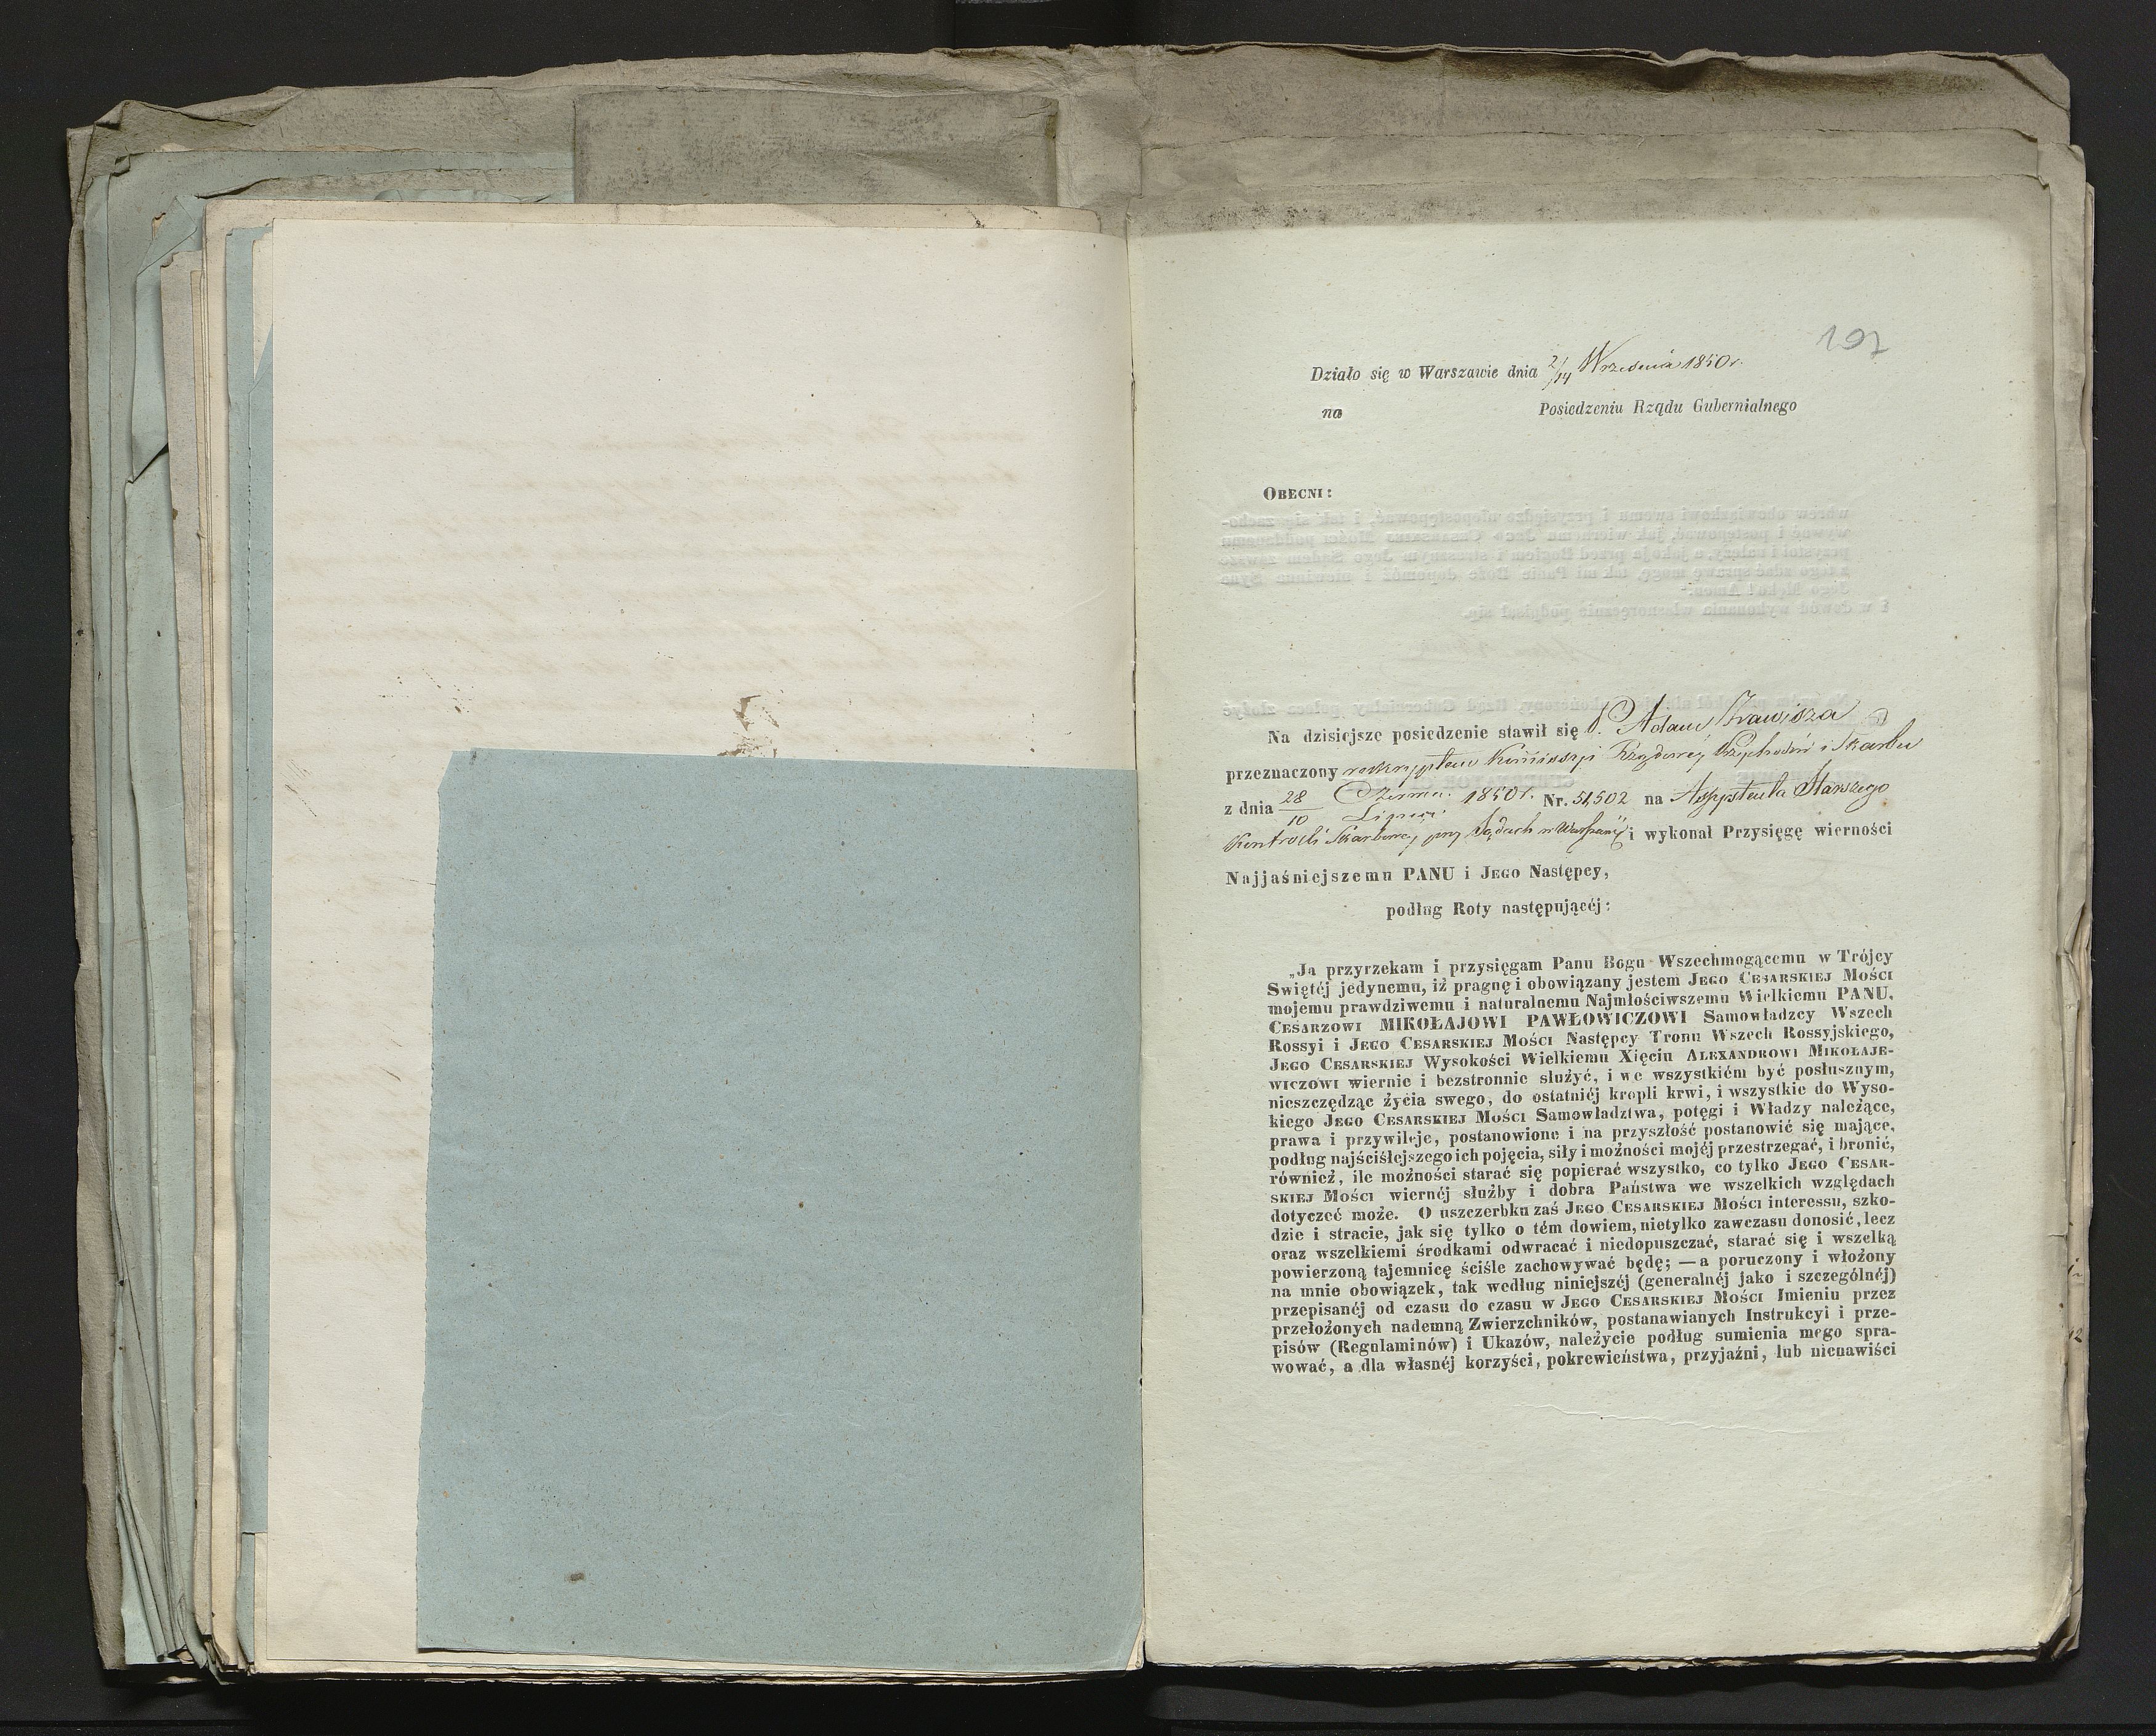 197
Działo się w Warszawie dnia 2/14 Września 1850 r.
na Posiedzeniu Rządu Gubernialnego
OBECNI:
Na dzisiejsze posiedzenie stawił się P. Adam Zrawisza
przeznaczony reskryptem Kommissyi Rządowej Przychodów i Skarbu
z dnia 28 Czerwca / 10 Lipca 1850 r. Nr. 51,502 na Assystenta Starszego
Kontrolli Skarbowej przy Sądach w Warszawie i wykonał Przysięgę wierności
Najjaśniejszemu PANU i JEGO Następcy,
podług Roty następującéj:
„Ja przyrzekam i przysięgam Panu Bogu Wszechmogącemu w Trójcy
Swiętéj jedynemu, iż pragnę i obowiązany jestem JEGO CESARSKIEJ MOŚCI
mojemu prawdziwemu i naturalnemu Najmłościwszemu Wielkiemu PANU,
CESARZOWI MIKOŁAJOWI PAWŁOWICZOWI Samowładzcy Wszech
Rossyi i JEGO CESARSKIEJ MOŚCI Następcy Tronu Wszech Rossyjskiego,
JEGO CESARSKIEJ Wysokości Wielkiemu Xięciu ALEXANDROWI MIKOŁAJE-
WICZOWI wiernie i bezstronnie służyć, i we wszystkiém być posłusznym,
nieszczędząc życia swego, do ostatniéj kropli krwi, i wszystkie do Wyso-
kiego JEGO CESARSKIEJ MOŚCI Samowładztwa, potęgi i Władzy należące,
prawa i przywileje, postanowione i na przyszłość postanowić się mające,
podług najściślejszego ich pojęcia, siły i możności mojéj przestrzegać, i bronić,
również, ile możności starać się popierać wszystko, co tylko JEGO CESAR-
SKIEJ MOŚCI wiernéj służby i dobra Państwa we wszelkich względach
dotyczeć może. O uszczerbku zaś JEGO CESARSKIEJ MOŚCI interessu, szko-
dzie i stracie, jak się tylko o tém dowiem, nietylko zawczasu donosić, lecz
oraz wszelkiemi środkami odwracać i niedopuszczać, starać się i wszelką
powierzoną tajemnicę ściśle zachowywać będę; — a poruczony i włożony
na mnie obowiązek, tak według niniejszéj (generalnéj jako i szczególnéj)
przepisanéj od czasu do czasu w JEGO CESARSKIEJ MOŚCI Imieniu przez
przełożonych nademną Zwierzchników, postanawianych Instrukcyi i prze-
pisów (Regulaminów) i Ukazów, należycie podług sumienia mego spra-
wować, a dla własnéj korzyści, pokrewieństwa, przyjaźni, lub nienawiści